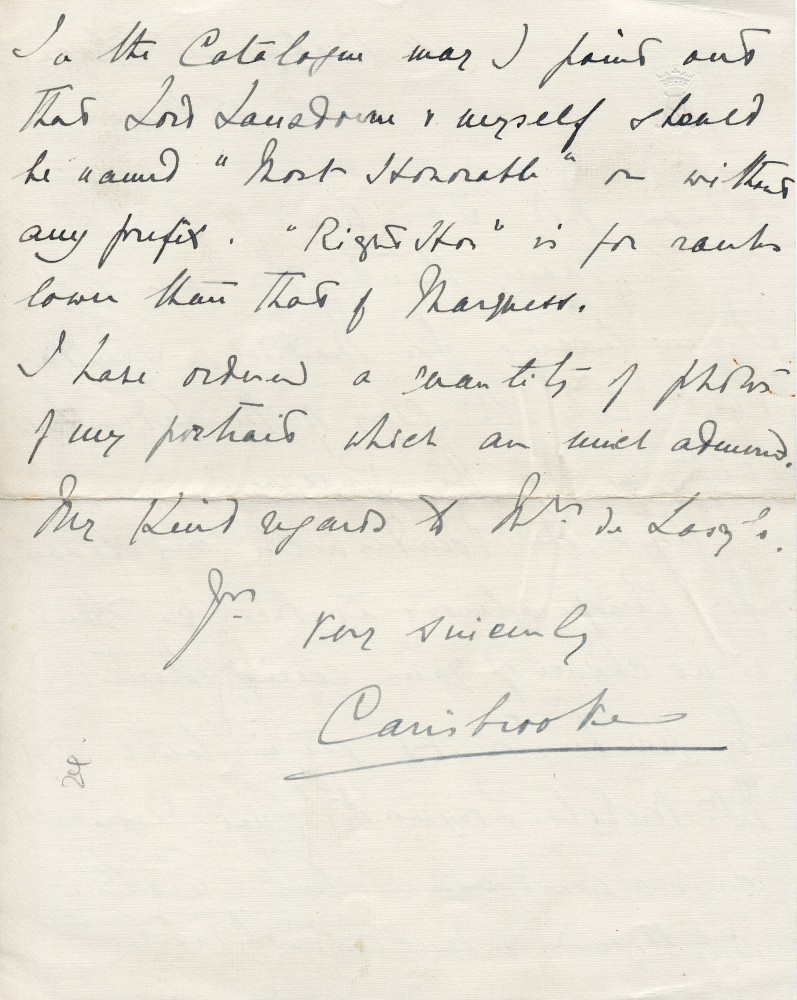 In the Catalogue may I point out
that Lord Lansdowne & myself should
be named "Most Honorable" or without
any prefix. "Right Hon" is for ranks
lower than that of Marquess.
I have ordered a quantity of photos
of my portrait which are much admired.
My Kind regards to Mrs. de Laszlo.
Yrs.
very sincerely
Carisbrooke